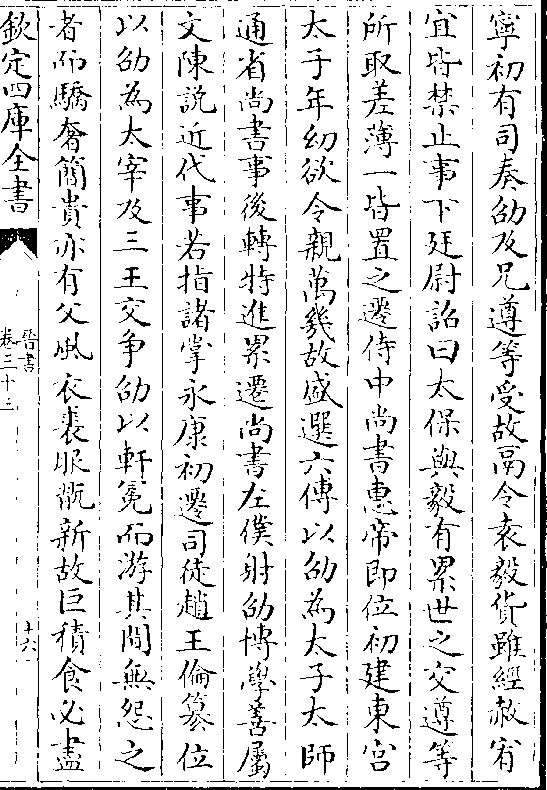 寧初有司奏劭及兄遵等受故鬲令袁毅貨雖經赦宥
宜皆禁止事下廷尉詔曰太保與毅有累世之交遵等
所取差薄一皆置之遷侍中尚書惠帝即位初建東宮
太子年幼欲令親萬幾故盛選六傅以劭為太子太師
通省尚書事後轉特進累遷尚書左僕射劭博學善屬
文陳説近代事若指諸掌永康初遷司徒趙王倫簒位
以劭為太宰及三王交爭劭以軒冕而游其間無怨之
者而驕奢簡貴亦有父風衣裘服翫新故巨積食必盡
欽定四庫全書
晉書
卷三十三
十六